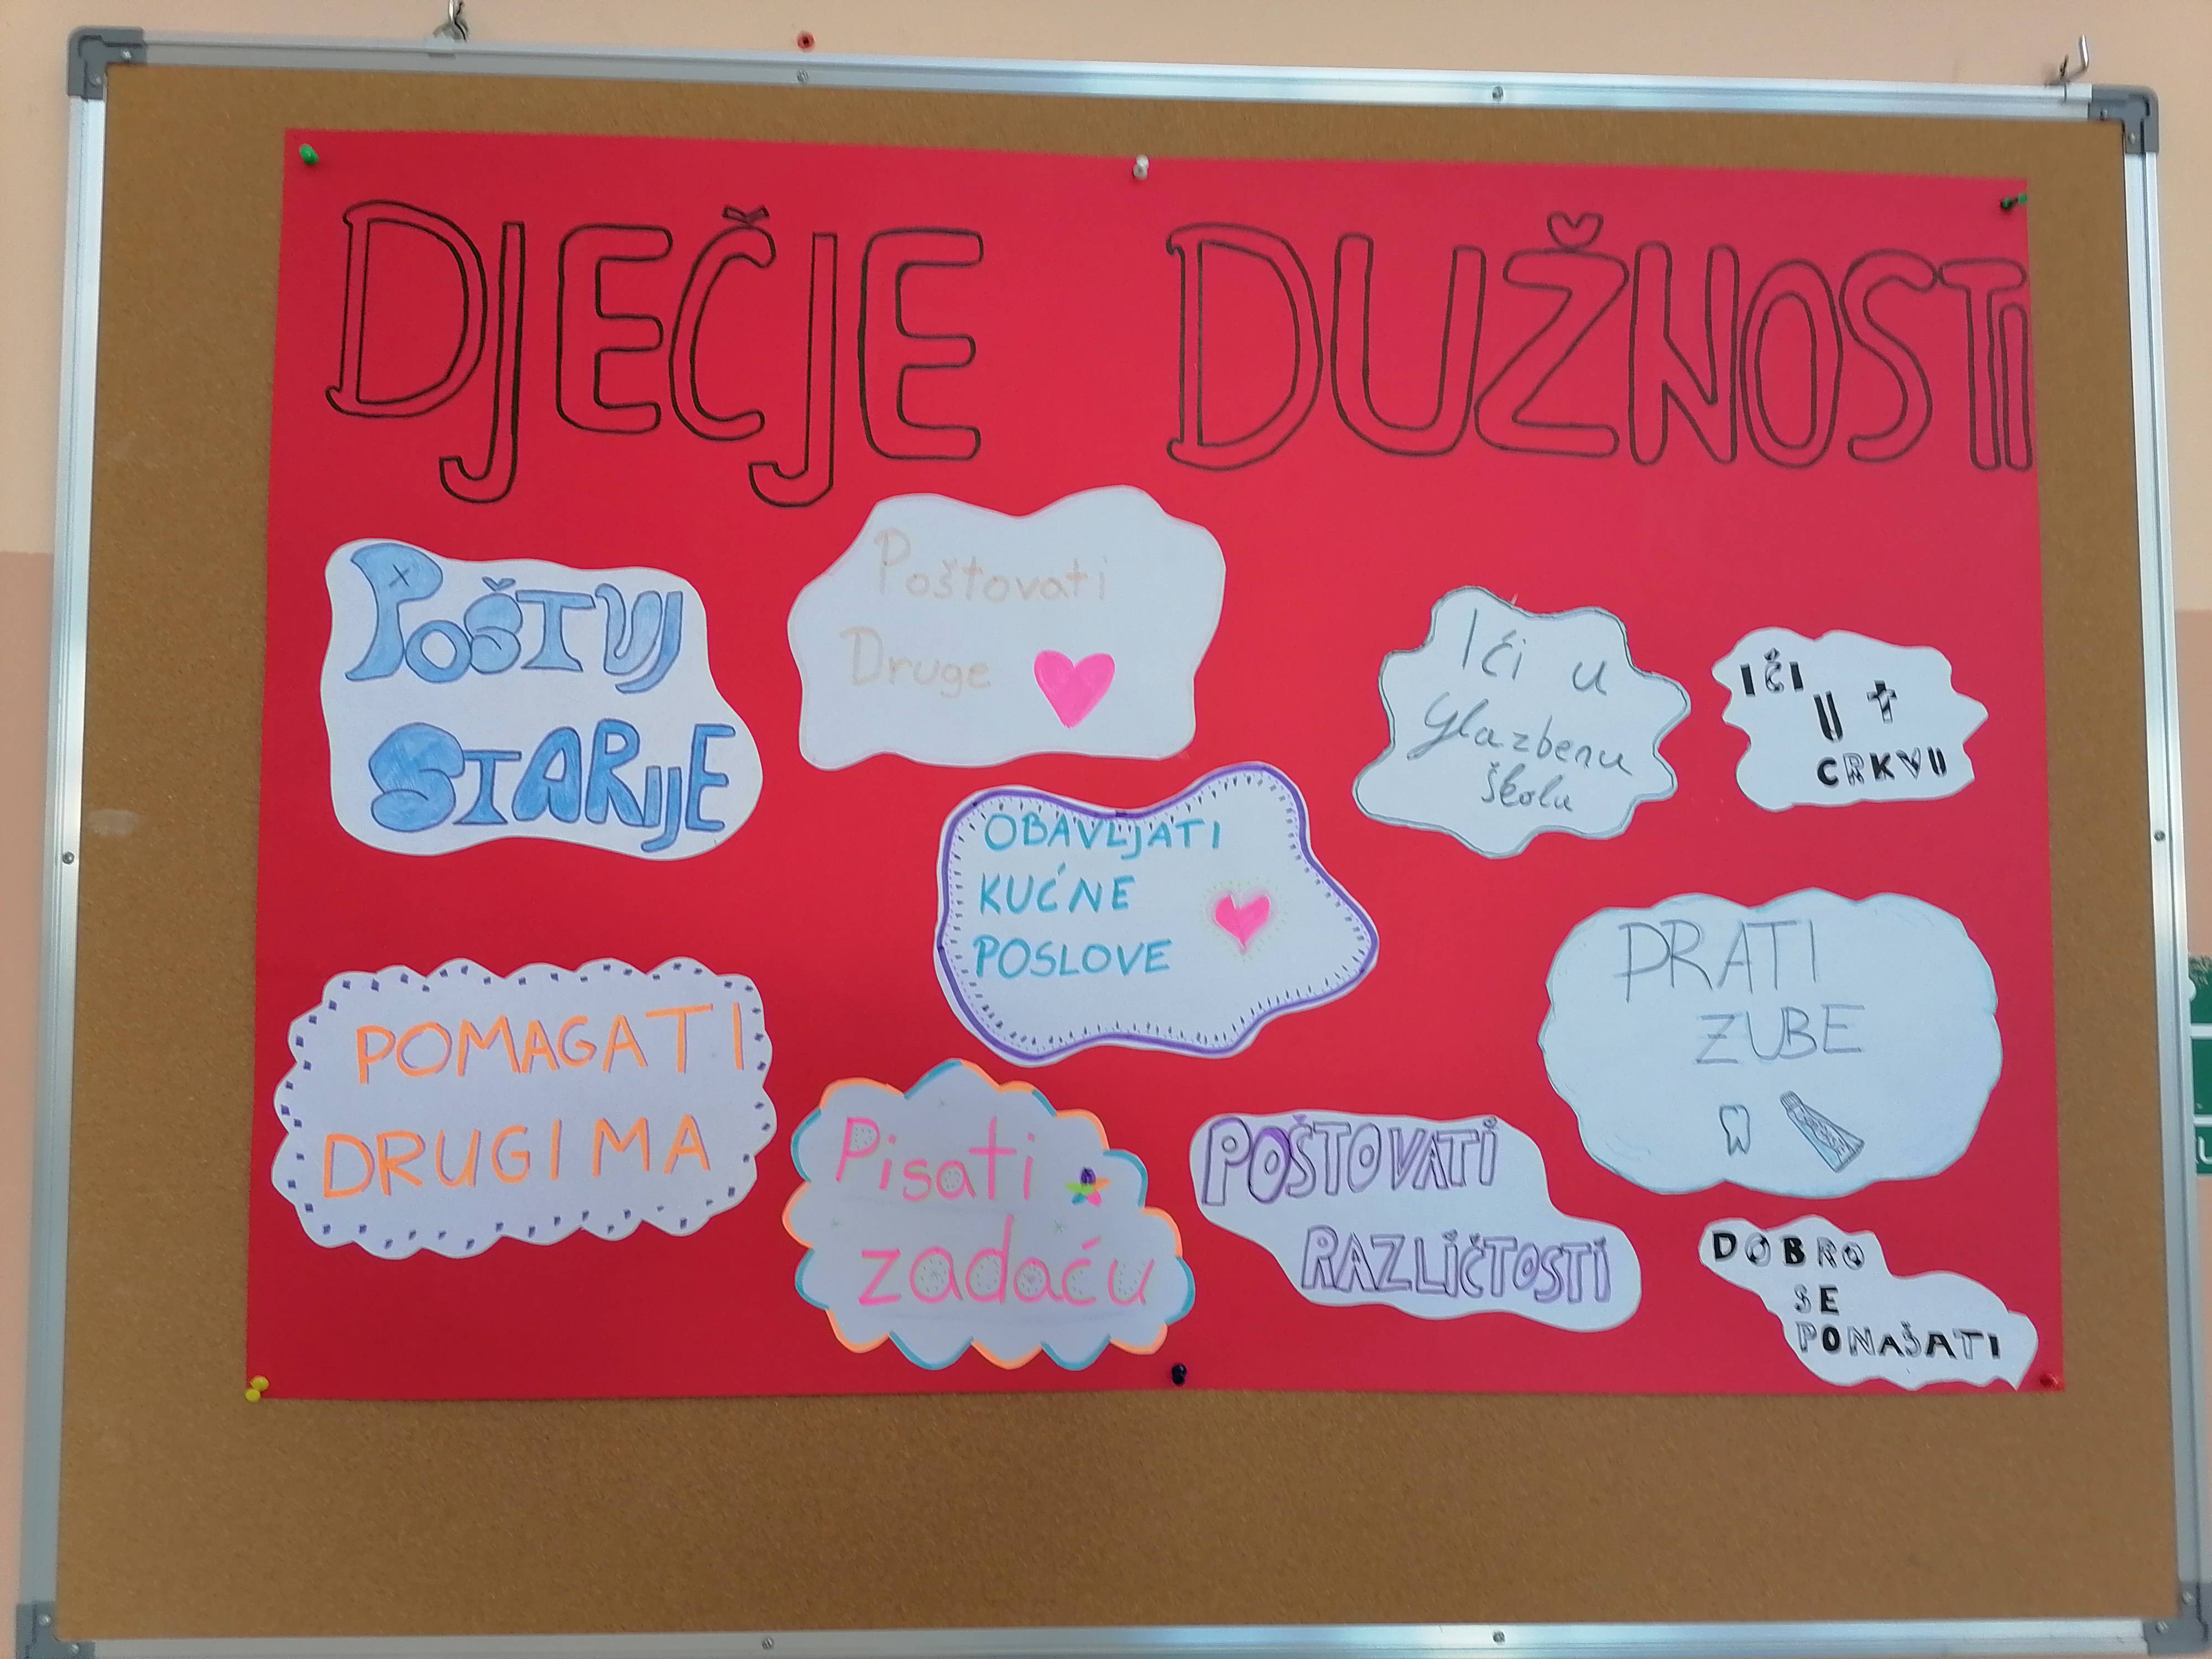 DJEČJE DUŽNOSTI
POŠTUJ
STARIJE
Poštovati
Druge
Iči u
glazbenu
školu
IČI
U
CRKVU
OBAVLJATI
KUĆNE
POSLOVE
PRATI
ZUBE
POMAGATI
DRUGIMA
Pisati
zadaću
POŠTOVATI
RAZLIČTOSTI
DOBRO
SE
PONAŠATI